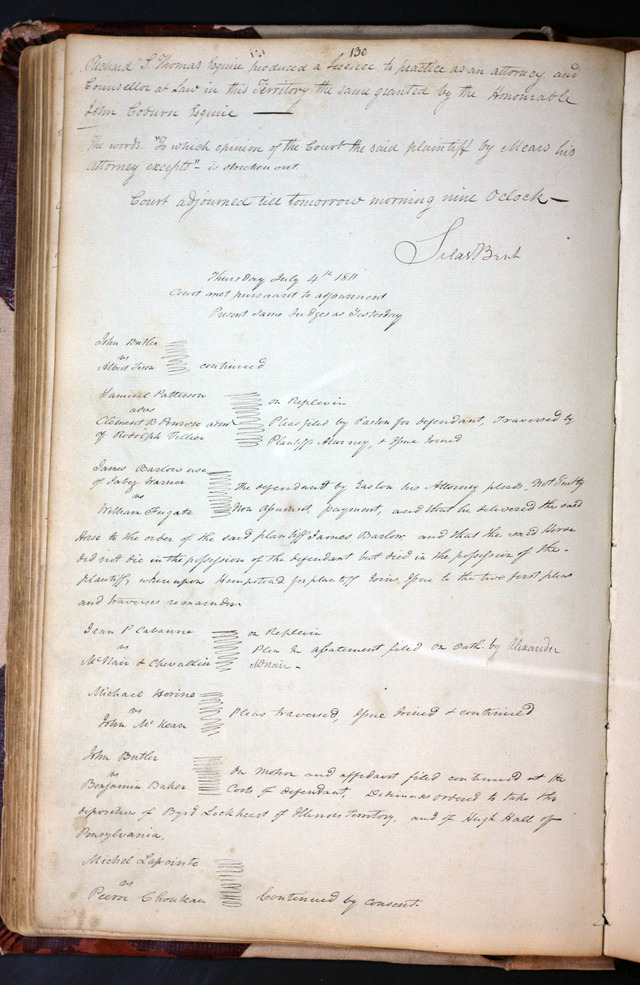 130
Richard S. Thomas Esquire produced a Licence to practice as an attorney and
Counsellor at Law in this Territory the same granted by the Honourable
John Coburn Esquire
The words. "To which opinion of the Court the said plaintiff by Mears his
attorney excepts" - is stricken out
Court adjourned till tomorrow morning nine Oclock
Silas Bent
Thursday July 4th 1811
Court met pursuant to adjournment
Present Same Judges as Yesterday
John Butler
vs
Albert Tison
continued
Samuel Patterson
advs
Clement B Penrose adm
of Rodolph Tellier
on Replevin
Pleas filed by Easton for defendant, Traversed by
Plaintiffs Attorney, & Issue Joined
James Barlow use
of Jabez Warner
vs
William Fugate
The defendant by Easton his Attorney pleads, Not Guilty
Non Assumsit, payment, and that he delivered the said
Horse to the order of the said plaintiff James Barlow. and that the said Horse
did not die in the possession of the defendant but died in the possession of the
plaintiff, whereupon Hempstead for plaintiff Joins Issue to the two first pleas
and traverses remainder
Jean P Cabanne
vs
McNair & Chevallier
on Replevin
Plea in Abatement filed on Oath by Alexander
McNair
Michael Horine
vs
John McKean
Pleas traversed, Issue Joined & continued
John Butler
vs
Benjamin Baker
On motion and affidavit filed continued at the
Costs of defendant, Dedimus ordered to take the
deposition of Byrd Lockheart of Illinois Territory, and of Hugh Hall of
Pensylvania.
Michel Lapointe
vs
Pierre Chouteau
Continued by consent.